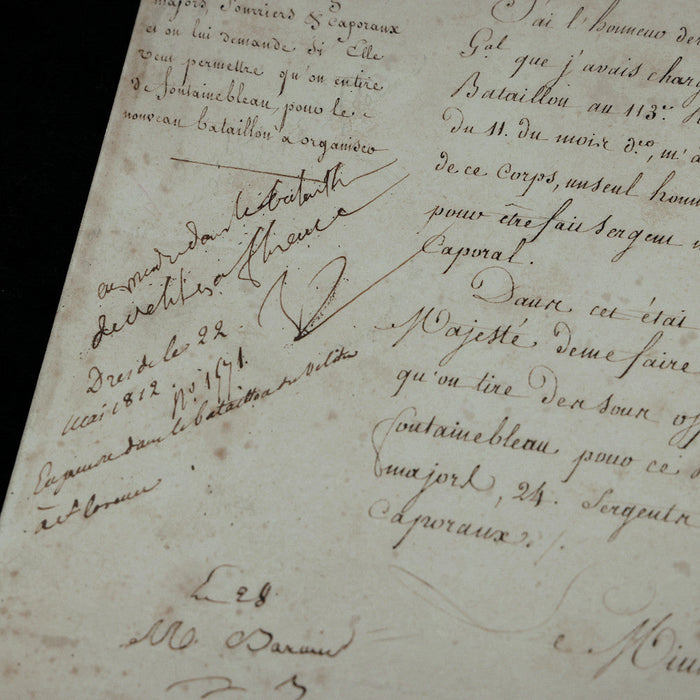 majors, fourriers & Caporaux
et on lui demande Si Elle
veut permettre qu'on entire
de fontainebleau, pour le
nouveau bataillon a organiser
dans le bataillon
de velites a florence
Dresde le 22
mai 1812
No. 1571.
En prendre dans le bataillon de Velites
à florence
Le 28
M.
J'ai l'honneur de
Gal. que j'avais charg
Bataillon au 113e. R
du 11. du mois d.er, m'a
de ce Corps, un seul homm
pour être fait Sergent
Caporal.
Dans cet état
Majesté de me faire
qu'on tire des sous off
fontainebleau pour ce
majors, 24. Sergents
Caporaux.